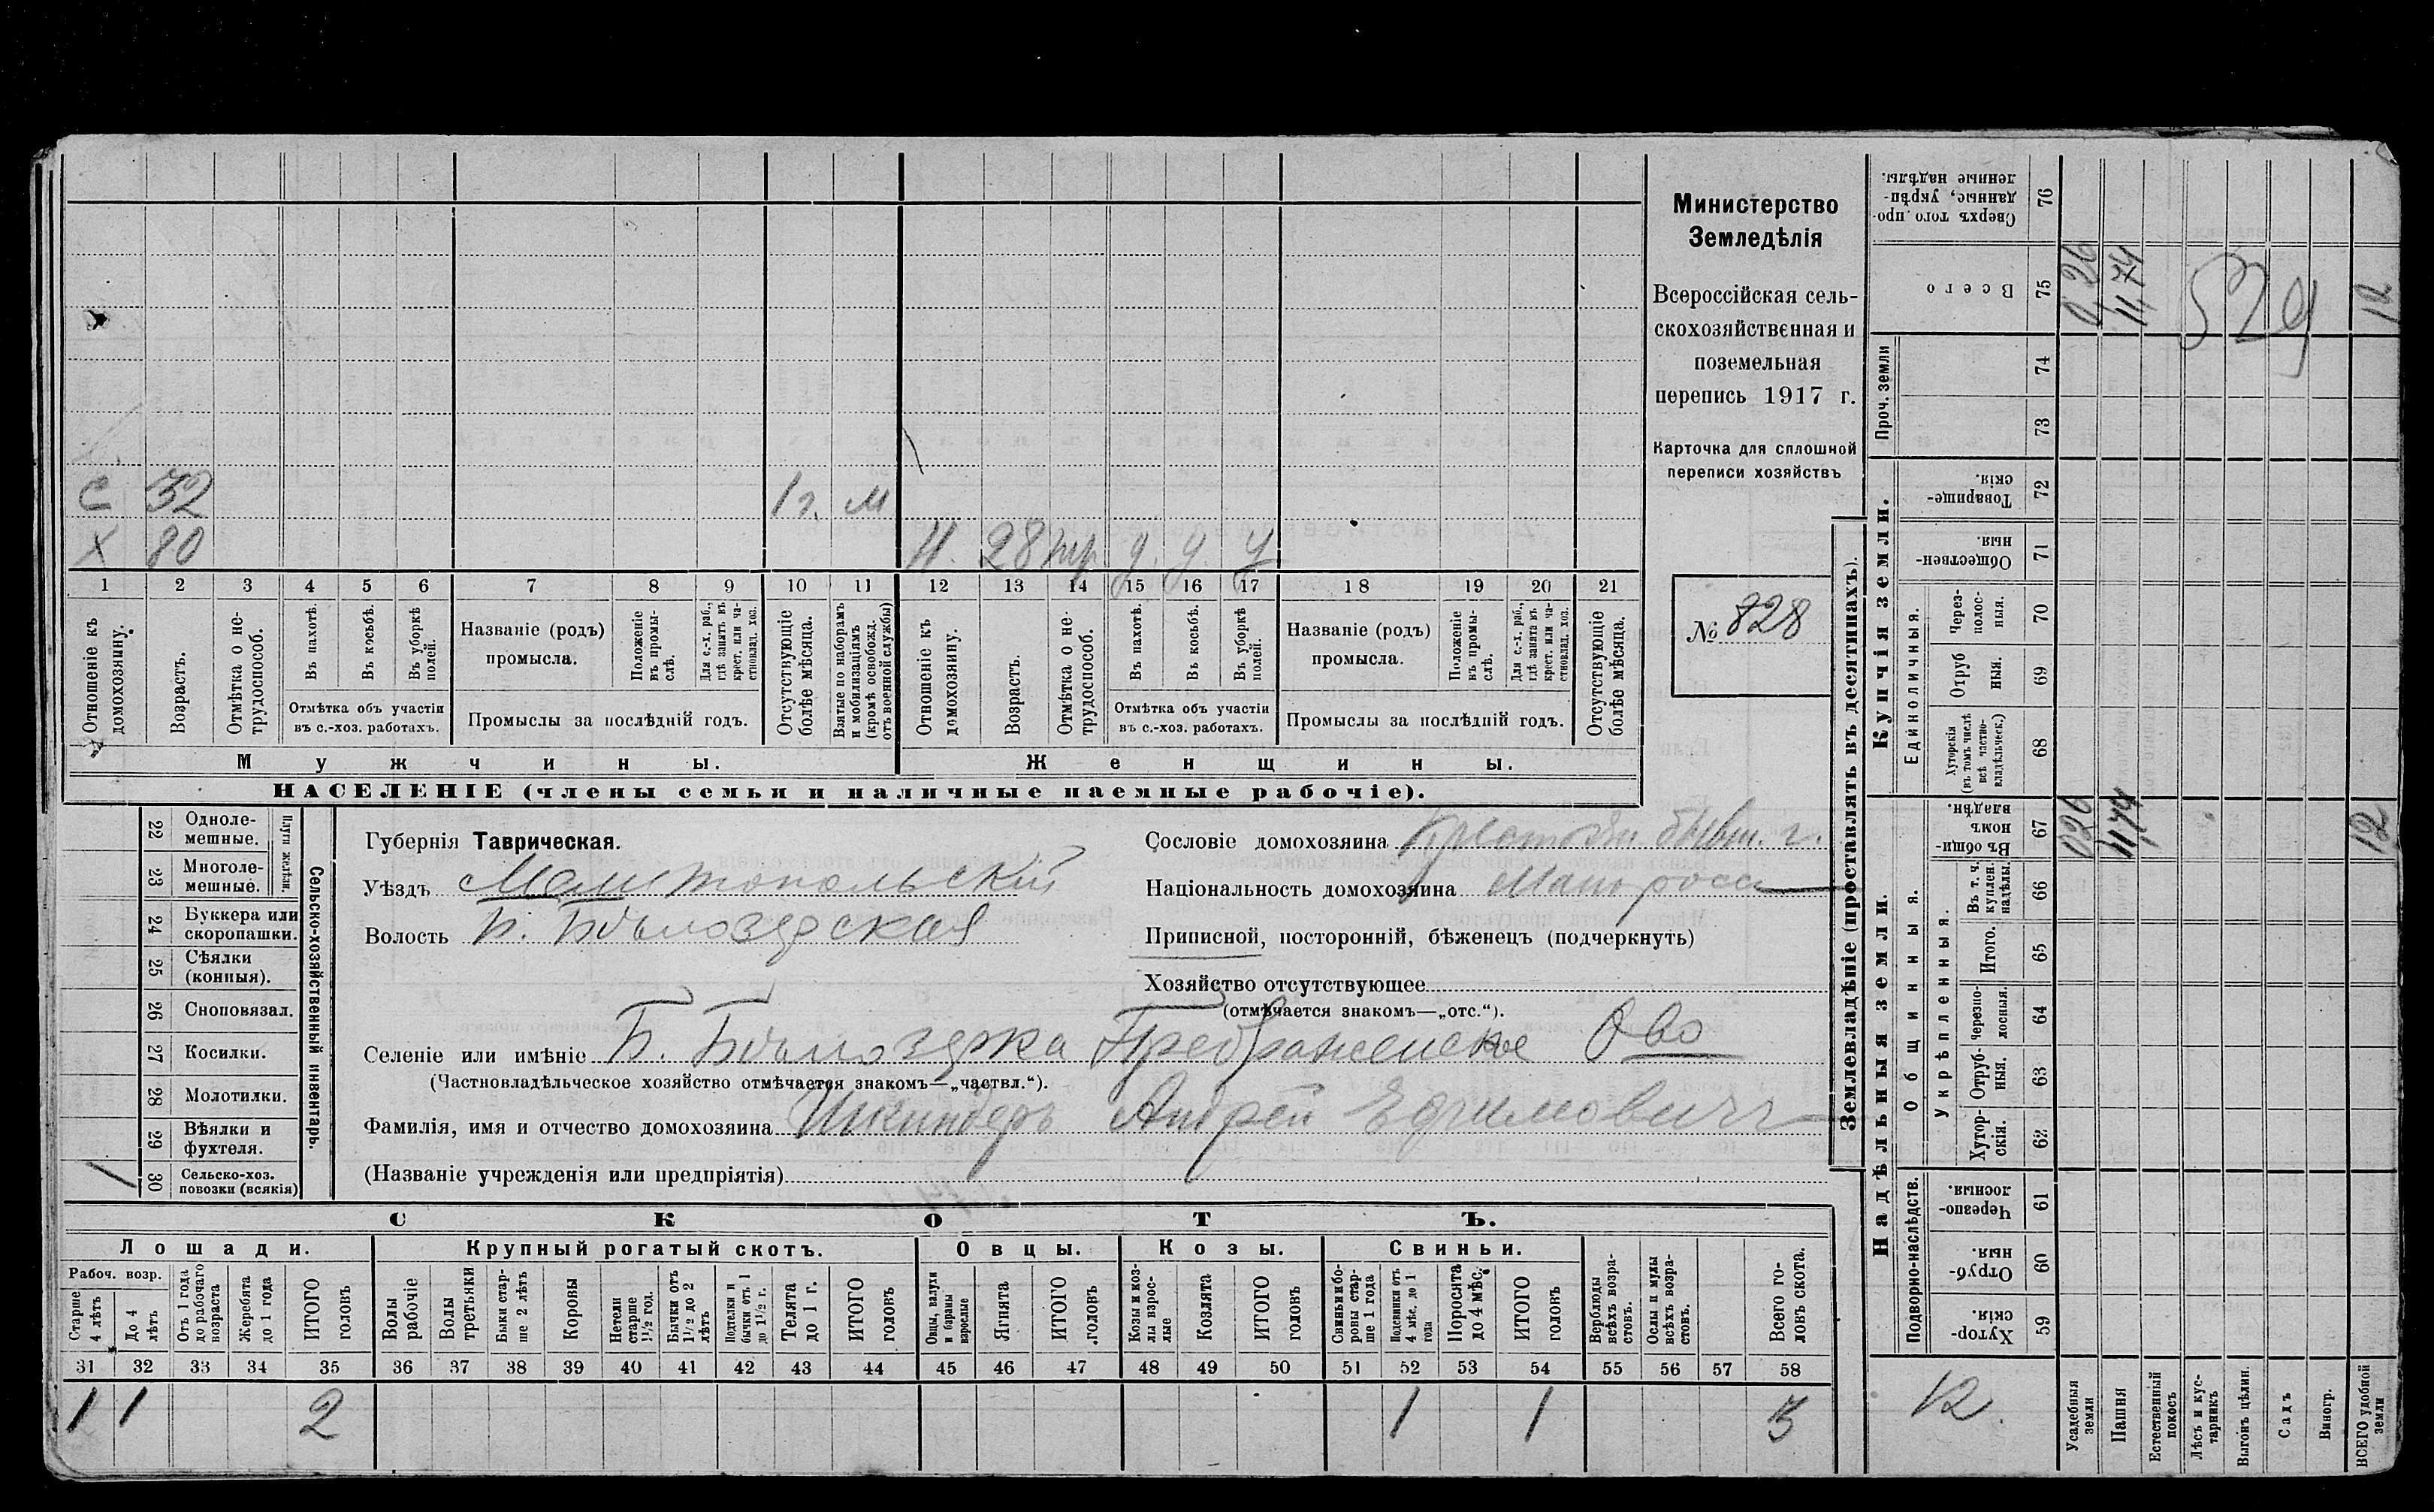 С 32 1 г. м
Х 80 Н. 28 тр у. у. у
1 2 3 4 5 6 7 8 9 10 11 12 13 14 15 16 17 18 19 20 21
Отношеніе къ домохозяину.
Возрастъ.
Отмѣтка о нетрудоспособ.
Въ пахотѣ.
Въ косьбѣ.
Въ уборкѣ полей.
Отмѣтка объ участіи
въ с.-хоз. работахъ.
Названіе (родъ)
промысла.
Положеніе въ промыслѣ.
Для с.-х. раб., гдѣ занятъ въ крест. или частновлад. хоз.
Промыслы за послѣдній годъ.
Отсутствующіе болѣе мѣсяца.
Взятые по наборамъ и мобилизаціямъ (кромѣ освобожд. отъ военной службы)
Отношеніе къ домохозяину.
Возрастъ.
Отмѣтка о нетрудоспособ.
Въ пахотѣ.
Въ косьбѣ.
Въ уборкѣ полей.
Отмѣтка объ участіи
въ с.-хоз. работахъ.
Названіе (родъ)
промысла.
Положеніе въ промыслѣ.
Для с.-х. раб., гдѣ занята въ крест. или частновлад. хоз.
Промыслы за послѣдній годъ.
Отсутствующіе болѣе мѣсяца.
Мужчины. Женщины.
НАСЕЛЕНІЕ (члены семьи и наличные наемные рабочіе).
Министерство
Земледѣлія
Всероссійская сель-
скохозяйственная и
поземельная
перепись 1917 г.
Карточка для сплошной
переписи хозяйствъ
№ 828
Сельско-хозяйственный инвентарь.
Плуги желѣзн.
22 Однолемешные.
23 Многолемешные.
24 Буккера или скоропашки.
25 Сѣялки (конныя).
26 Сноповязал.
27 Косилки.
28 Молотилки.
29 Вѣялки и фухтеля.
30 Сельско-хоз. повозки (всякія) 1
Губернія Таврическая.
Уѣздъ Мелитопольскій
Волость Б. Бѣлозерская
Сословіе домохозяина бывш. г.
Національность домохозяина Малоросс
Приписной, посторонній, бѣженецъ (подчеркнуть)
Хозяйство отсутствующее
(отмѣчается знакомъ—„отс.“).
Селеніе или имѣніе Б. Бѣлозерка Преображенское О-во
(Частновладѣльческое хозяйство отмѣчается знакомъ—„частвл.“).
Фамилія, имя и отчество домохозяина Шкиндеръ Андрей Ефимовичъ
(Названіе учрежденія или предпріятія)
СКОТЪ.
Лошади. Крупный рогатый скотъ. Овцы. Козы. Свиньи.
Рабоч. возр.
Старше 4 лѣтъ
До 4 лѣтъ
Отъ 1 года до рабочаго возраста
Жеребята до 1 года
ИТОГО головъ
Волы рабочіе
Волы третьяки
Быки старше 2 лѣтъ
Коровы
Нетели старше 1½ год.
Бычки отъ 1½ до 2 лѣтъ
Подтелки и бычки отъ 1 до 1½ г.
Телята до 1 г.
ИТОГО головъ
Овцы, валухи и бараны взрослые
Ягнята
ИТОГО головъ
Козы и козлы взрослые
Козлята
ИТОГО головъ
Свиньи и боровы старше 1 года
Подсвинки отъ 4 мѣс. до 1 года
Поросята до 4 мѣс.
ИТОГО головъ
Верблюды всѣхъ возрастовъ.
Ослы и мулы всѣхъ возрастовъ.
Всего головъ скота.
31 32 33 34 35 36 37 38 39 40 41 42 43 44 45 46 47 48 49 50 51 52 53 54 55 56 57 58
1 1 2 1 1 3
Землевладѣніе (проставлять въ десятинахъ).
Сверхъ того проданные, укрѣпленные надѣлы. 76
Всего 75 0,26 11,74 12
529
Проч. земли 74 73
Купчія земли.
Товарищескія. 72
Общественныя. 71
Единоличныя.
Черезполосныя. 70
Отрубныя. 69
Хуторскія (въ томъ числѣ всѣ частновладѣльческ.) 68
Надѣльныя земли.
Общинныя.
Въ общинномъ владѣн. 67 026 1174 12
Укрѣпленныя.
Въ т. ч. куплен. надѣлы. 66
Итого. 65
Черезполосныя. 64
Отрубныя. 63
Хуторскія. 62
Подворно-наслѣдств.
Черезполосныя. 61
Отрубныя. 60
Хуторскія. 59
12.
Усадебныя земли
Пашня
Естественный покосъ
Лѣсъ и кустарникъ
Выгонъ цѣлин.
Садъ
Виногр.
ВСЕГО удобной земли